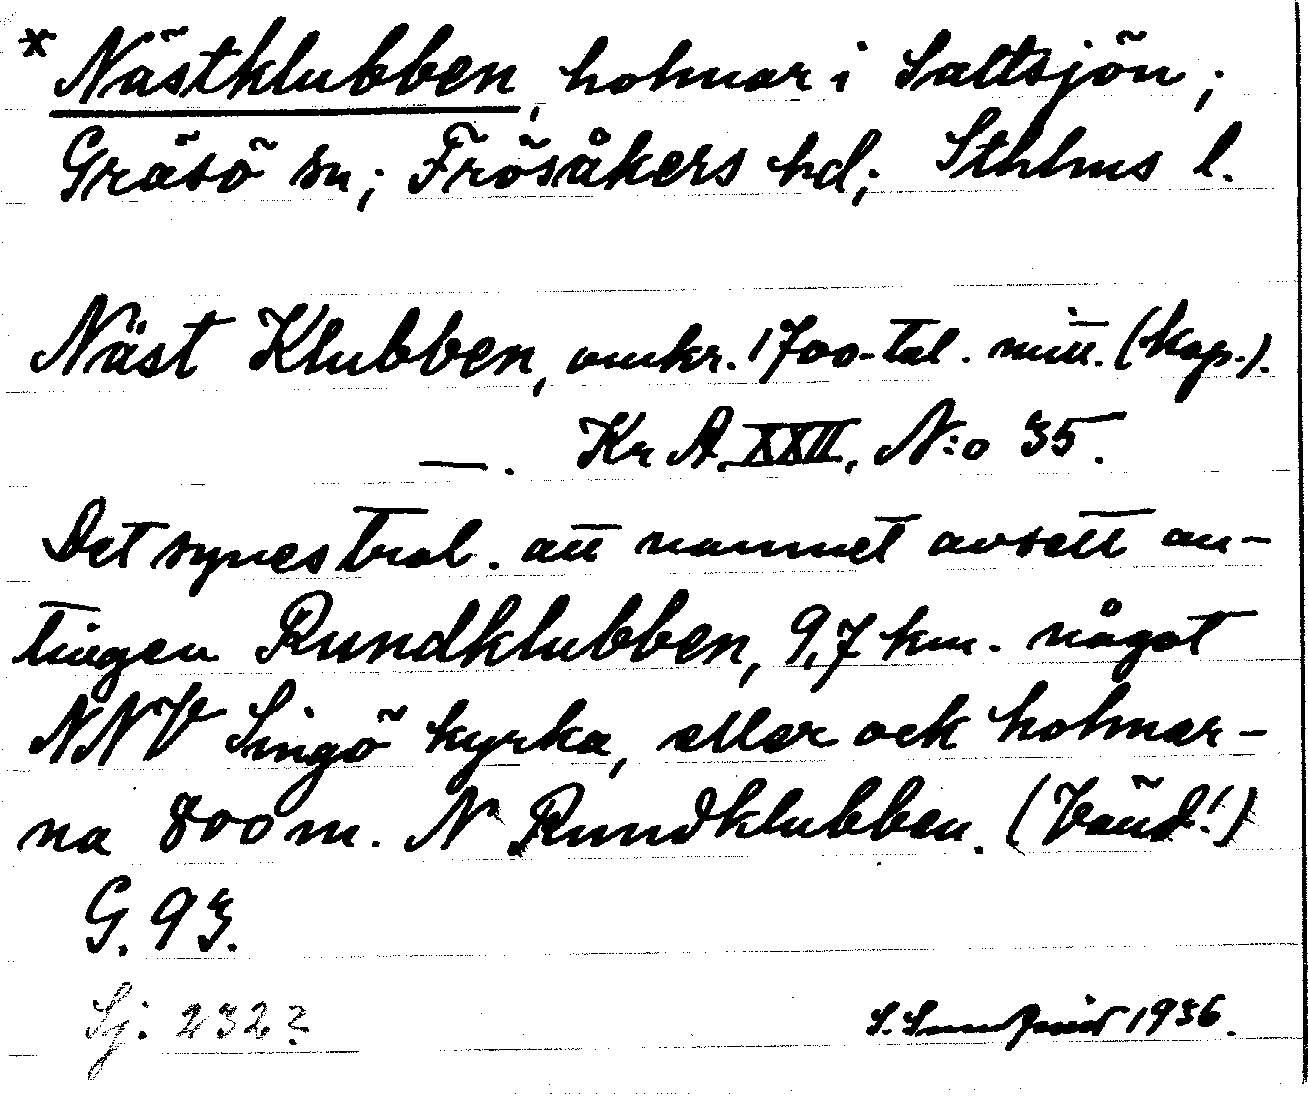 * Nästklubben, holmar i Saltsjön;
Gräsö sn; Frösåkers hd; Sthlms l.
Näst Klubben, omkr. 1700-tal. mitt. (kop.).
—. Kr A, XXII, N:o 35.
Det synes trol. att namnet avsett an-
tingen Rundklubben, 9,7 km. något
NNV Singö kyrka, eller ock holmar-
na 800 m. N Rundklubben. (Vänd!)
G. 93.
Sj: 232?
1936.